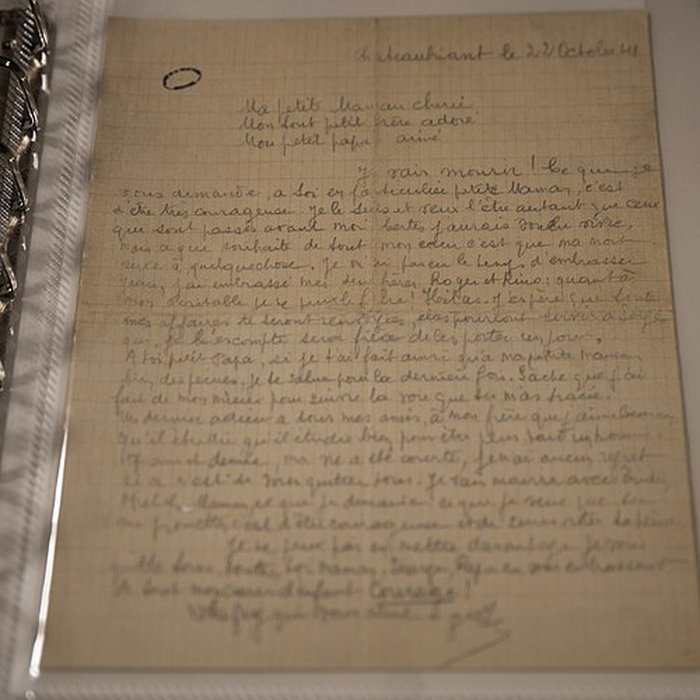 Chateaubriant le 22 Octobre 41
Ma petite Maman cherie
Mon tout petit frère adoré
Mon petit papa aimé
Je vais mourir ! Ce que je
vous demande, a toi en particulier petite Maman, c'est
d'être très courageuse. Je le suis et veux l'être autant que ceux
qui sont passés avant moi. Certes j'aurais voulu vivre,
mais ce que souhaite de tout mon coeur c'est que ma mort
serve à quelquechose. Je n'ai pas eu le temps d'embrasser
Jean, j'ai embrassé mes deux frères, Roger et Rino : quant à
mon veritable je ne peux le faire ! Hélas. J'espère que toutes
mes affaires te seront renvoyées, elles pourront servir a Serge
qui, je l'escompte sera fier de les porter un jour.
A toi petit Papa, si je t'ai fait ainsi qu'a ma petite Maman
bien des peines, je te salue pour la dernière fois. Sache que j'ai
fait de mon mieux pour suivre la voie que tu m'as tracée.
Un dernier adieu a tous mes amis, à mon frère que j'aime beaucoup
Qu'il étudie qu'il étudie bien pour être plus tard un homme.
17 ans et demie, ma vie a été courte, je n'ai aucun regret
si ce n'est de vous quitter tous. Je vais mourir avec
Michels. Maman, ce que je demande ce que je veux que tu
me promettes c'est d'être courageuse et de surmonter ta peine
Je ne peux pas en mettre davantage je vous
quitte tous, toutes, toi Maman, Papa en vous embrassant
de tout mon coeur d'enfant Courage !
Votre Guy qui vous aime
Guy